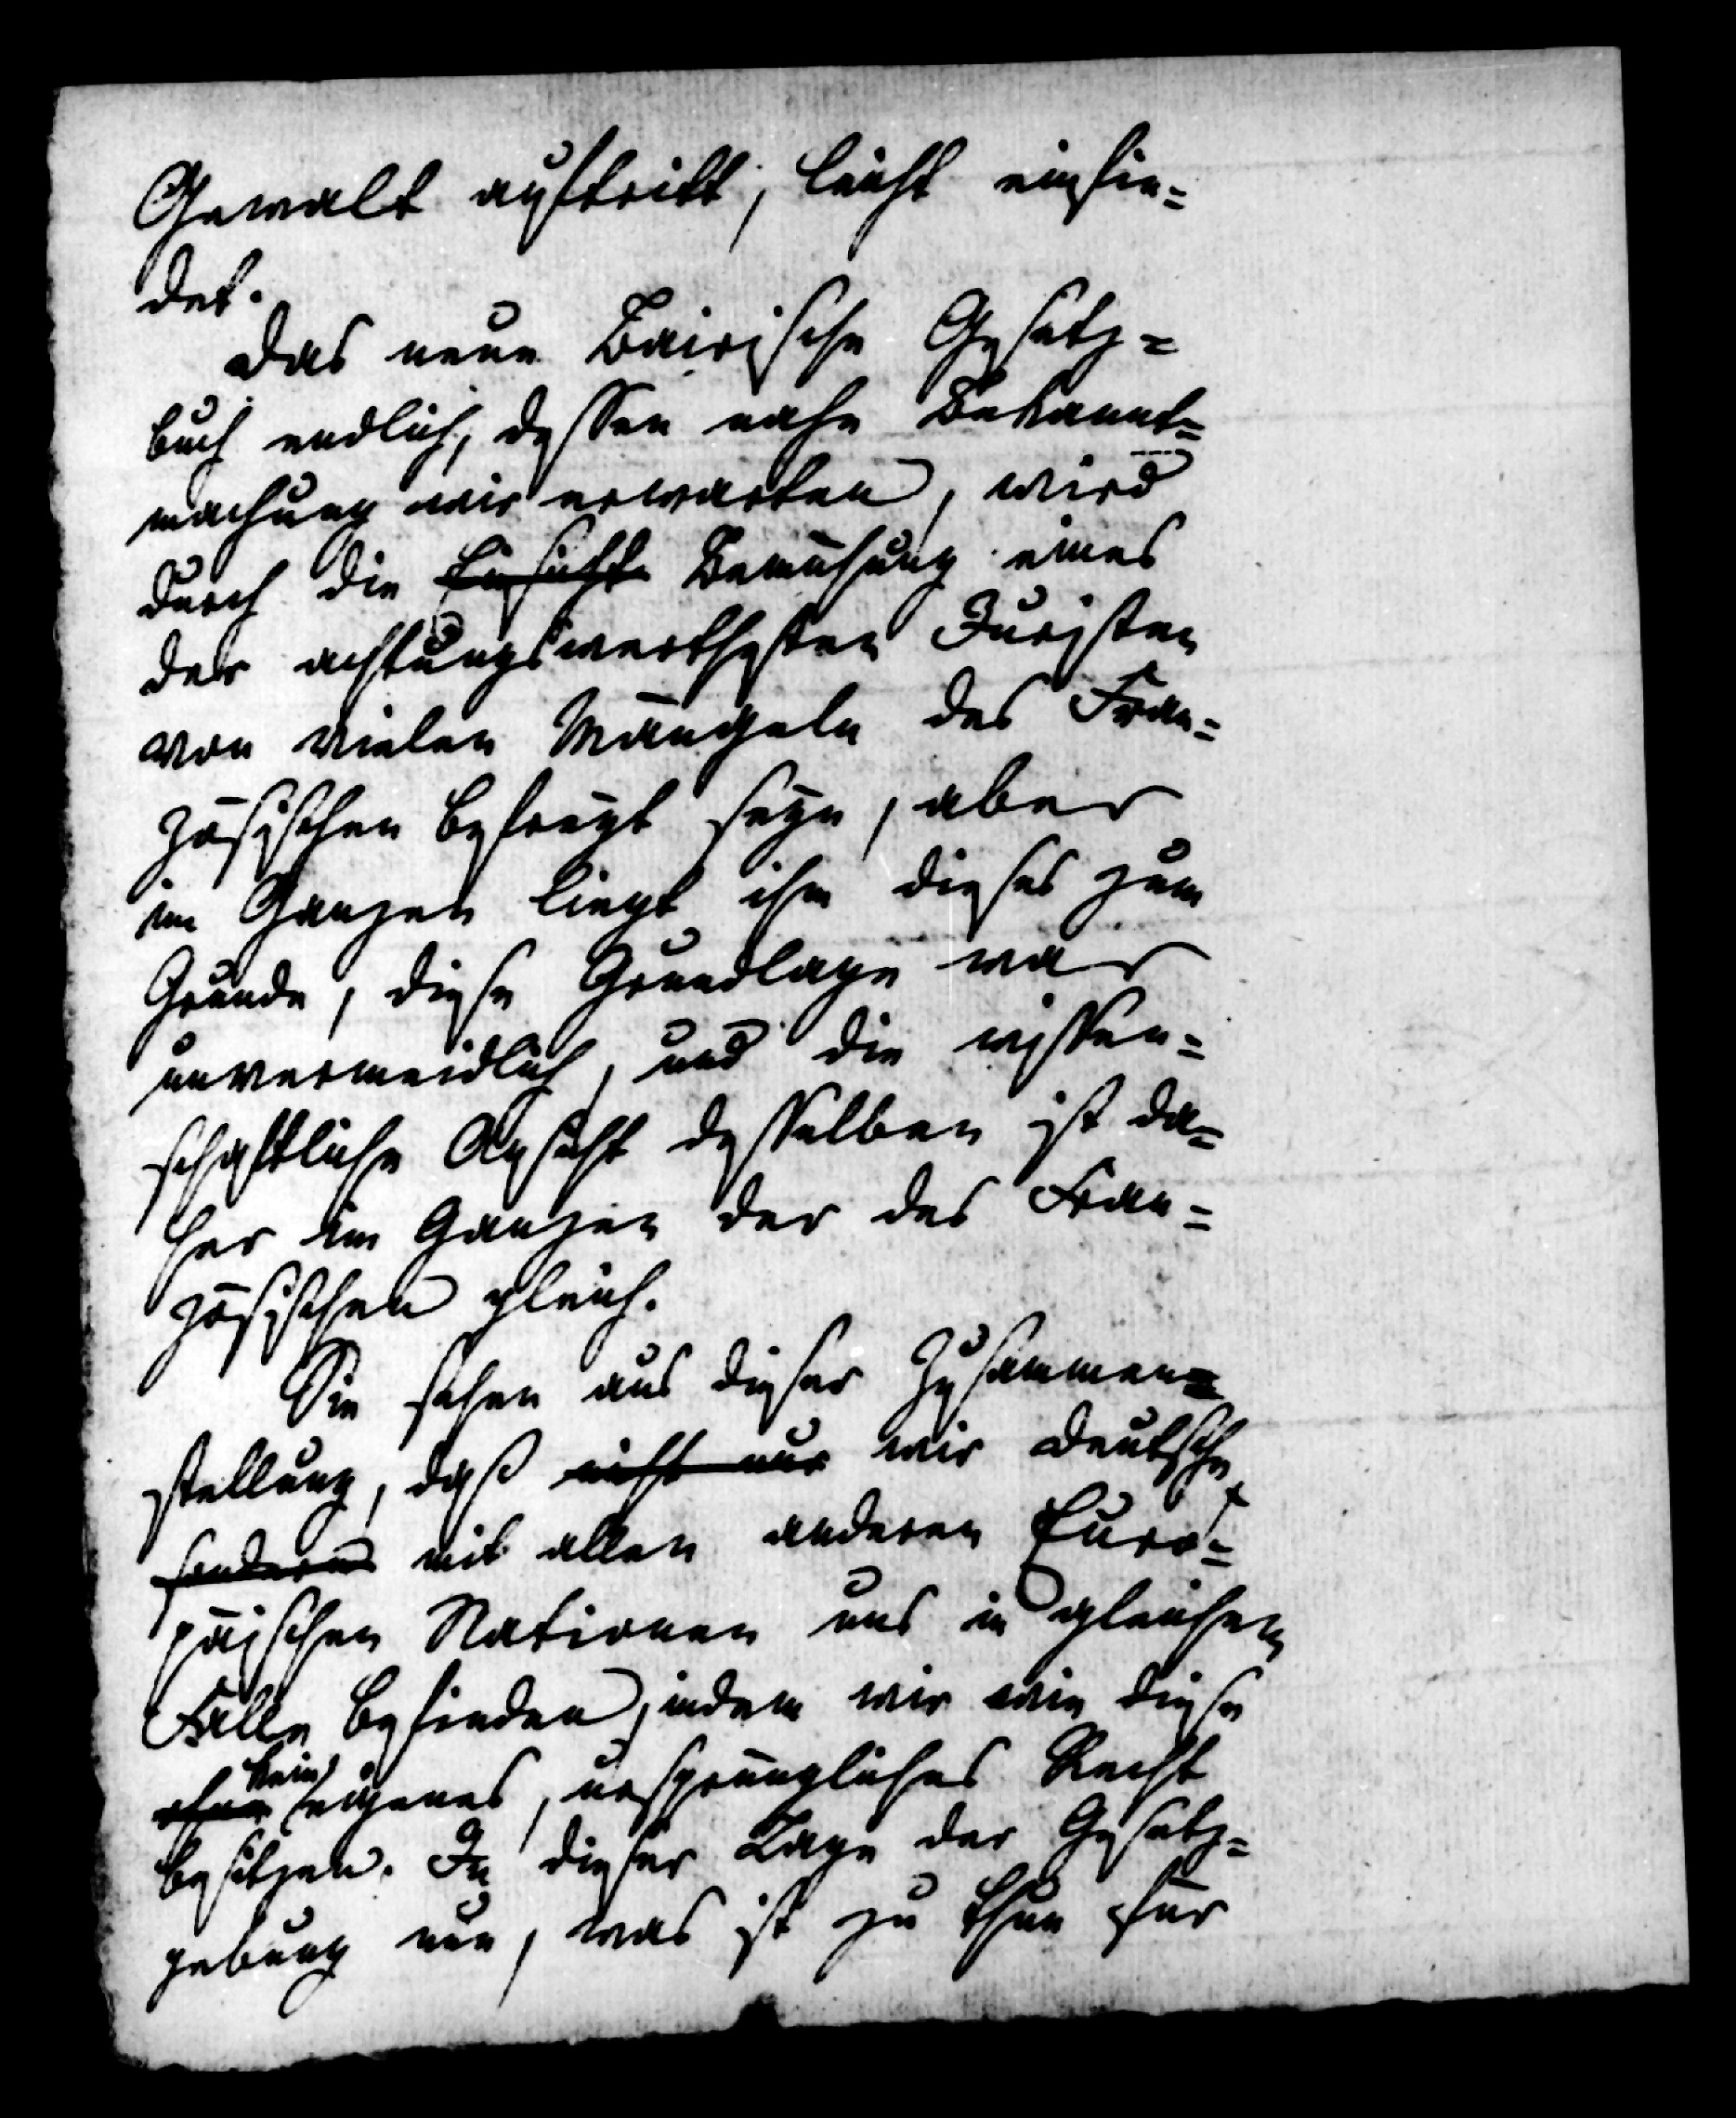 Gewalt auftritt, leicht einfin=
det.
Das neue Bairische Gesetz=
buch endlich, dessen nahe Bekannt=
machung wir erwarten, wird
durch die Einsicht Bemühung eines
der achtungswerthesten Juristen
von vielen Mängeln des Fran=
zösischen befreyt seyn, aber
im Ganzen liegt ihm dieses zum
Grunde, diese Grundlage war
unvermeidlich, und die wissen=
schaftliche Ansicht desselben ist da=
her im Ganzen der des Fran=
zösischen gleich.
Sie sehen aus dieser Zusammen=
stellung, daß nicht nur wir Deutsche
sondern mit allen anderen Euro=
päischen Nationen uns in gleichem
Falle befinden, indem wir wie diese
kein
eigenes, ursprüngliches Recht
besitzen. In dieser Lage der Gesetz=
gebung nun, was ist zu thun für